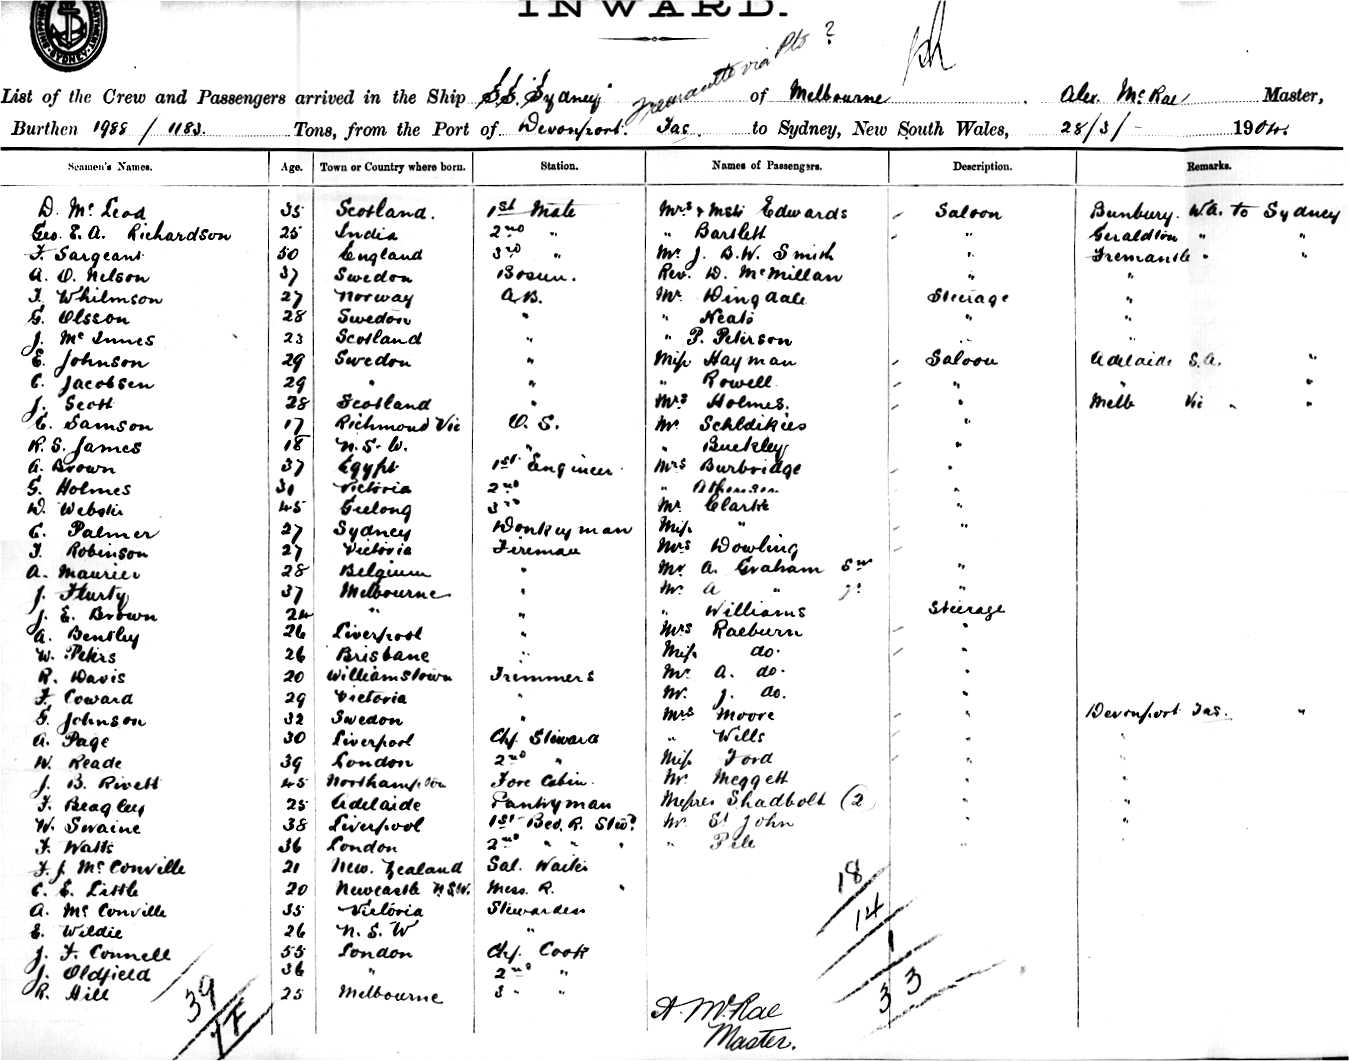 INWARD.
SYDNEY
Fremantle via Pts?
List of the Crew and Passengers arrived in the Ship S.S. Sydney of Melbourne Alex. McRae Master,
Burthen 1988 / 1183 Tons, from the Port of Devonport. Tas. to Sydney, New South Wales, 28/3/- 1904.
Seamen's Names. Age. Town or Country where born. Station. Names of Passengers. Description. Remarks.
D. McLeod 35 Scotland. 1st Mate Mrs & Mstr Edwards Saloon Bunbury. W.A. to Sydney
Geo. E. A. Richardson 25 India 2nd " " Bartlett " Geraldton " "
F. Sargeant 50 England 3rd " Mr J. B. W. Smith " Fremantle " "
A. O. Nelson 37 Sweden Bosun. Rev. D. McMillan " "
F. Whilmson 27 Norway A.B. Mr Dingdale Steerage "
G. Olsson 28 Sweden " " Neals " "
J. McInnes 23 Scotland " " P. Peterson " "
E. Johnson 29 Sweden " Miss Hayman Saloon Adelaide S.A. "
C. Jacobsen 29 " " " Rowell " " "
J. Scott 28 Scotland " Mrs Holmes. " Melb Vic " "
C. Samson 17 Richmond Vic O.S. Mr "
R. S. James 18 N.S.W. " " Buckley "
A. Brown 37 Egypt 1st Engineer Mrs Burbridge "
G. Holmes 31 Victoria 2nd " Atkinson "
D. Webster 45 Geelong 3rd Mr Clarke "
C. Palmer 27 Sydney Donkeyman Miss " "
F. Robinson 27 Victoria Fireman Mrs Dowling
A. Maurier 28 Belgium " Mr A. Graham Snr "
J. Flurty 37 Melbourne " Mr A " Jr "
J. E. Brown 24 " " " Williams Steerage
A. Bentley 26 Liverpool " Mrs Raeburn "
W. Peters 26 Brisbane " Miss do. "
R. Davis 20 Williamstown Trimmers Mr A. do. "
F. Coward 29 Victoria " Mr J. do. "
G. Johnson 32 Sweden " Mrs Moore " Devonport Tas. "
A. Page 30 Liverpool Chf Steward " Wills " "
W. Reade 39 London 2nd " Miss Ford " "
J. B. Rivett 45 Northampton Fore Cabin Mr Meggett " "
F. Beagley 25 Adelaide Pantryman Messrs Shadbolt (2) " "
W. Swaine 38 Liverpool 1st Bed. R. Stwd Mr St John " "
F. Watts 36 London 2nd " " " " Pile "
F. J. McConville 21 New. Zealand Sal. Waiter
C. E. Little 20 Newcastle N.S.W. Mess. R. "
A. McConville 35 Victoria Stewardess
E. Wildie 26 N.S.W "
J. F. Connell 55 London Chf. Cook
J. Oldfield 36 " 2nd "
R. Hill 25 Melbourne 3 " "
39
18
14
1
33
A. McRae
Master.